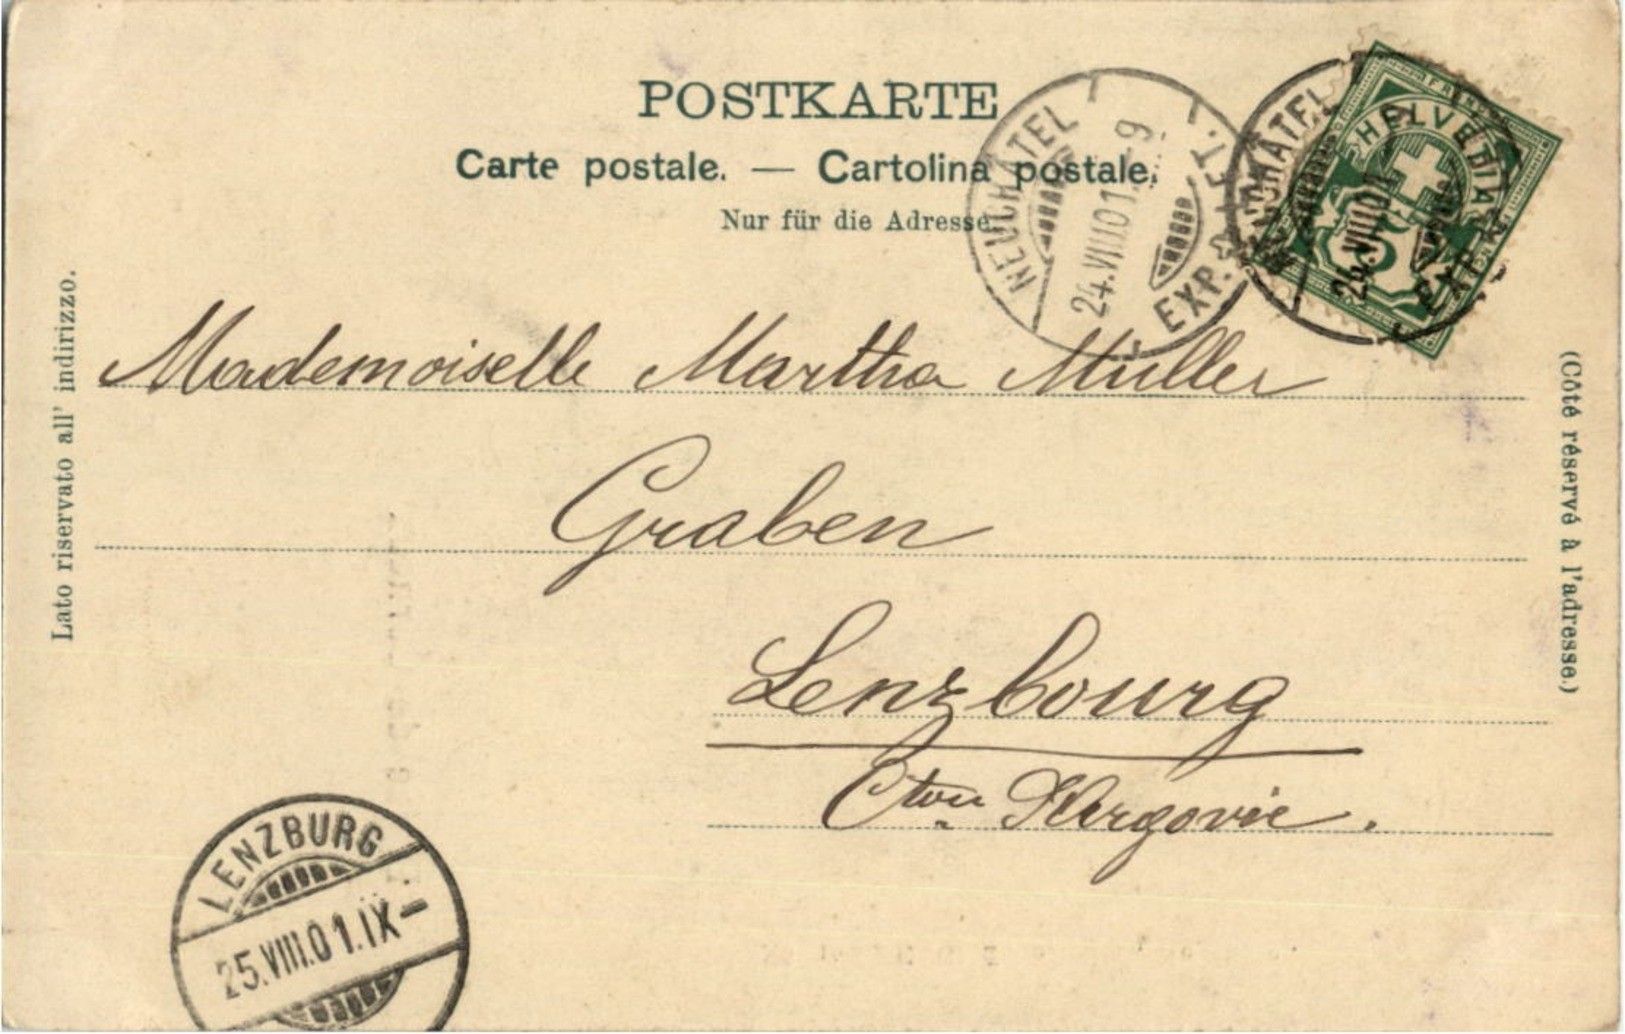 POSTKARTE
Carte postale. — Cartolina postale.
Nur für die Adresse.
NEUCHÂTEL
24.VIII.01.-9
EXP. LET.
NEUCHÂTEL
24.VIII.01
EXP.
FRANCO
HELVETIA
5
Lato riservato all' indirizzo.
(Côté réservé à l'adresse.)
Mademoiselle Martha Müller
Graben
Lenzbourg
Cton Argovie.
LENZBURG
25.VIII.01.IX-